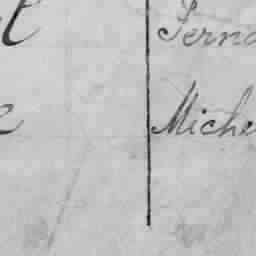 t Ferna
e Miche